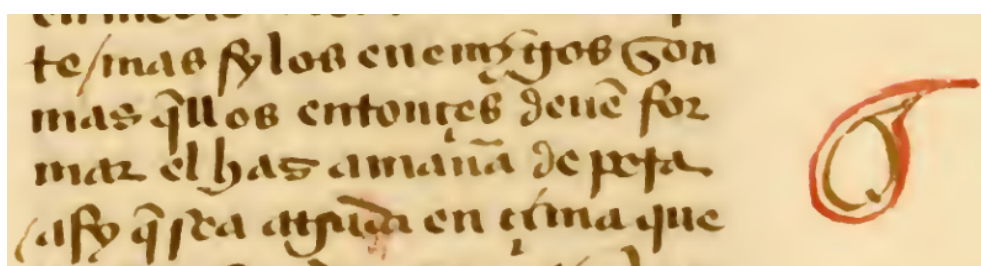 te / mas sy los enemỹgos son
mas q̃llos entonçes deuẽ for
mar el has a manãa de peta
/ asy q̃ sea aguda en çima que